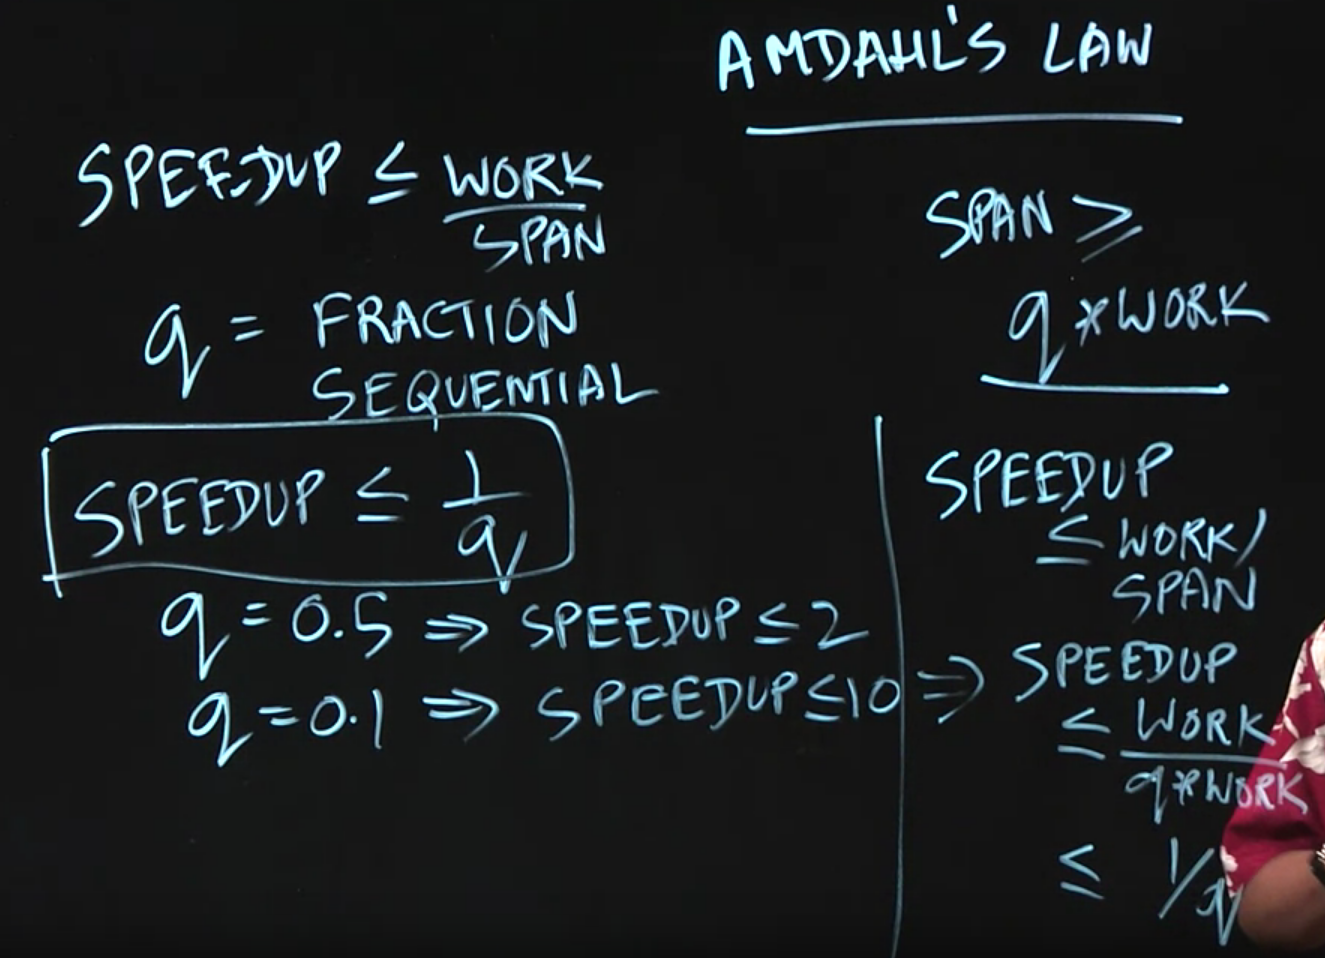 AMDAHL'S LAW
SPEEDUP ≤ WORK
SPAN
q = FRACTION
SEQUENTIAL
SPEEDUP ≤ 1
q
q = 0.5 ⇒ SPEEDUP ≤ 2
q = 0.1 ⇒ SPEEDUP ≤ 10
SPAN ≥
q * WORK
SPEEDUP
≤ WORK/
SPAN
⇒ SPEEDUP
≤ WORK
q * WORK
≤ 1/q